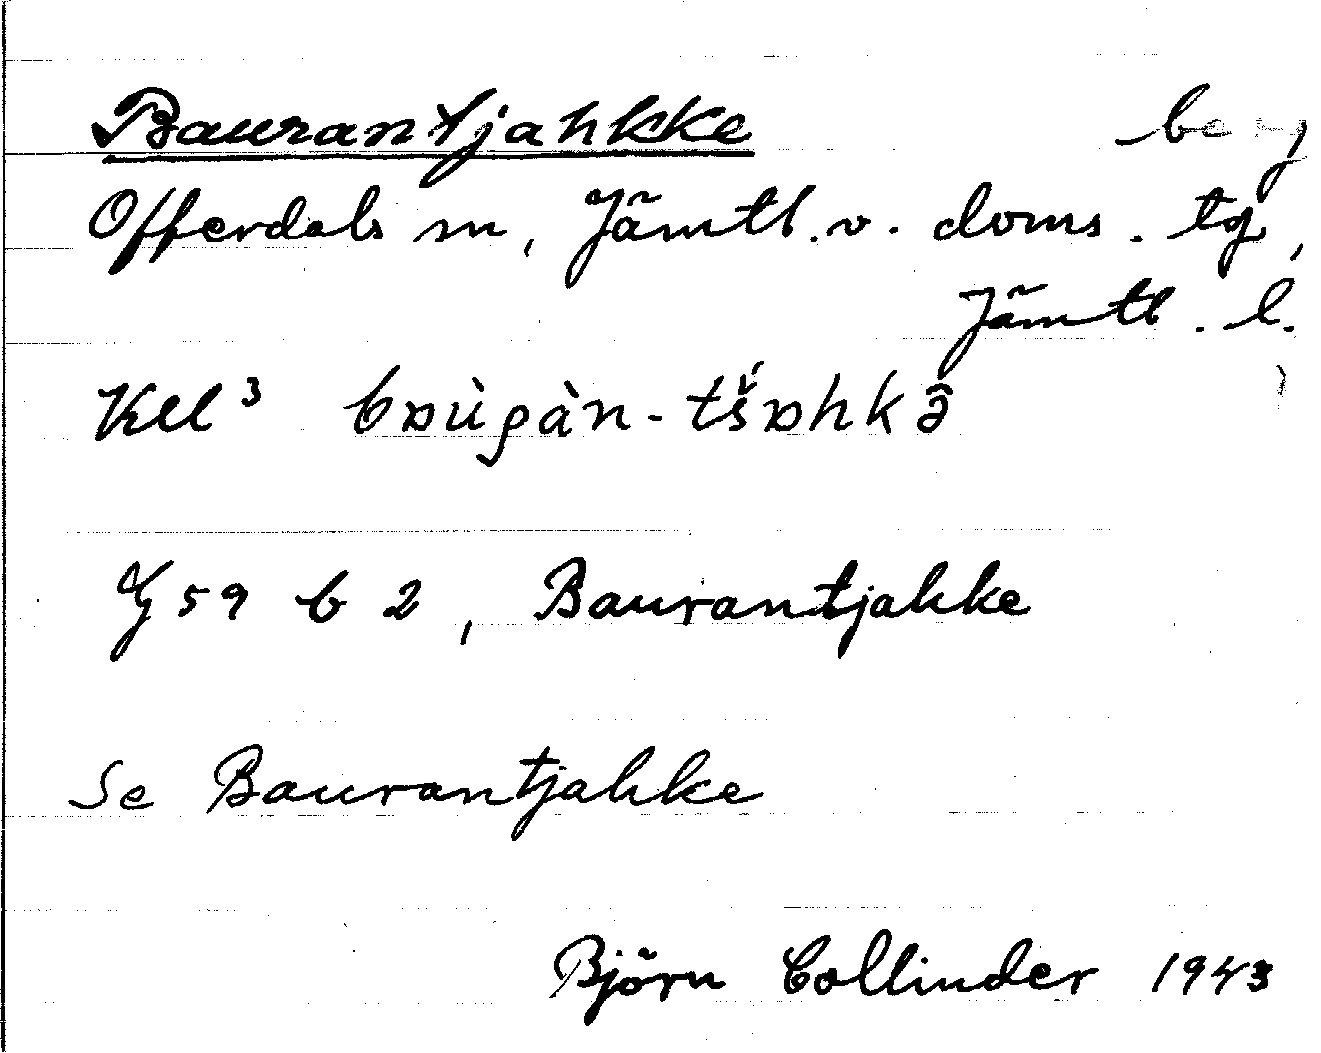 Baurantjahkke berg
Offerdals sn, Jämtl. v. doms. tg,
Jämtl. l.
Kll³ bɒùρàn-tš́ɒhkə̂
G 59 b 2, Baurantjahke
Se Baurantjahke
Björn Collinder 1943